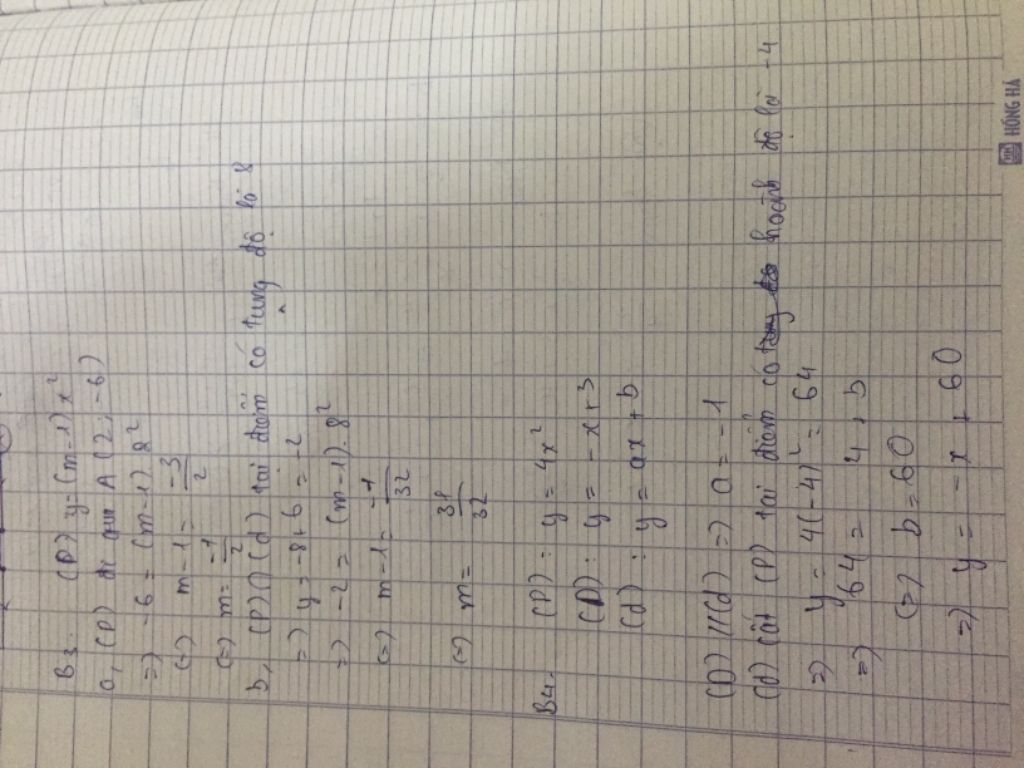 B3. (P) y = (m-1) x²
a, (P) đi qua A (2; -6)
=) -6 = (m-1) 8²
(=) m-1 = -3/2
(=) m = -1/2
b, (P)∩(d) tại điểm có tung độ là 8
=) y = -8+6 = -2
=) -2 = (m-1).8²
(=) m-1 = -1/32
(=) m = 31/32
B4. (P): y = 4x²
(D): y = -x+3
(d): y = ax+b
(D)//(d) =) a = -1
(d) cắt (P) tại điểm có hoành độ là -4
=) y = 4(-4)² = 64
=) 64 = 4+b
(=) b = 60
=) y = -x + 60
HỒNG HÀ